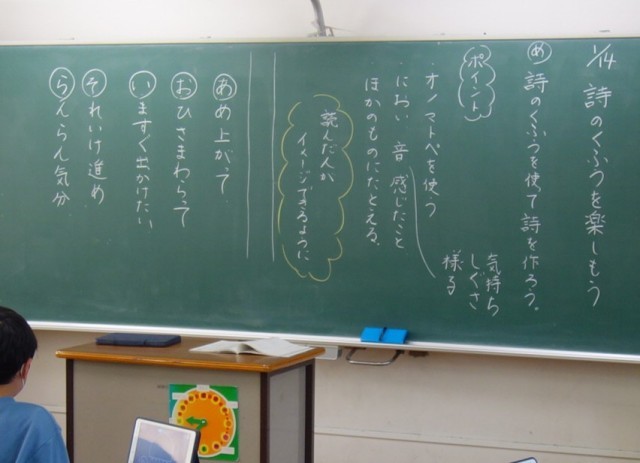 1/14 詩のくふうを楽しもう
め 詩のくふうを使て詩を作ろう。
ポイント
・オノマトペを使う
・におい 音 感じたこと
ほかのものにたとえる。
気持ち
しぐさ
様子
読んだ人が
イメージできるように
あめ上がって
おひさまわらって
いますぐ出かけたい
それいけ進め
らんらん気分